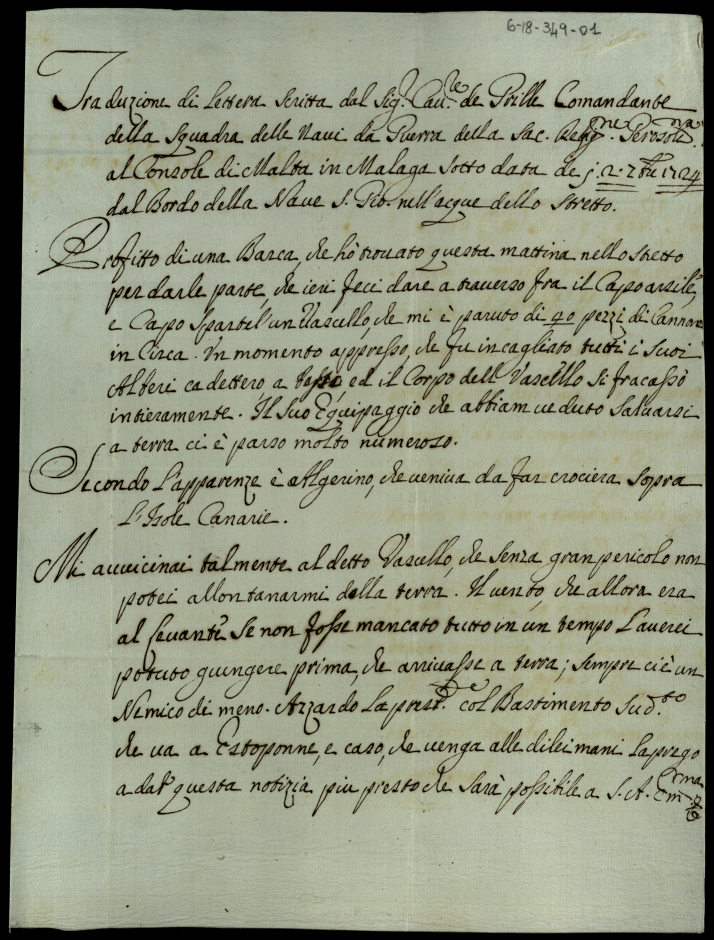 6-18-349-01
Traduzione di Lettera scritta dal Sig.r Cau.re de Brille Comandante
della Squadra delle Naui da Guerra della Sac. Relig.ne Gerosol.na
al Console di Malta in Malaga sotto data de j. 2. 7bre 1724
dal Bordo della Naue S. Gio. nell'acque dello Stretto.
Profitto di una Barca, che hò trouato questa mattina nello stretto
per darle parte, che ieri feci dare a trauerso fra il Capo
e Capo Spartel un Vascello, che mi è paruto di 40 pezzi di Cannone
in Circa. Un momento appresso, che fu incagliato tutti i suoi
Alberi cadettero a ed il Corpo dell Vascello si fracassò
intieramente. Il suo Equipaggio che abbiam ueduto saluarsi
a terra ci è parso molto numeroso.
Secondo l'apparenze è Algerino, che ueniua da far crociera sopra
L'Isole Canarie.
Mi auuicinai talmente al detto Vascello, che senza gran pericolo non
potei allontanarmi della terra. Il uento, che allora era
al Leuante se non fosse mancato tutto in un tempo l'auerei
potuto giungere prima, che arriuasse a terra; sempre ci è un
Nemico di meno. Azzardo la pres.te col Bastimento sud.to
che ua a Estoponne, e caso, che uenga alle di lei mani la prego
a dar questa notizia piu presto che sarà possibile a S. A. Em.ma